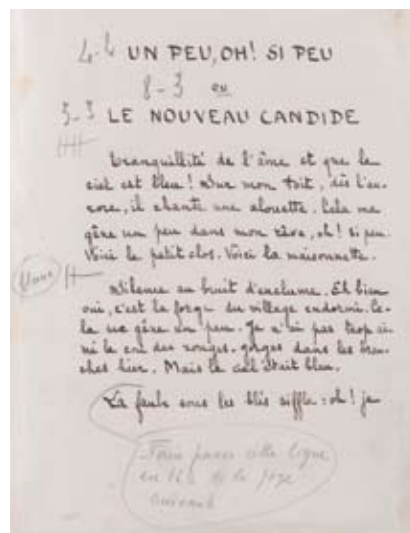 4-4 UN PEU, OH! SI PEU
8-3 ou
3-3 LE NOUVEAU CANDIDE
Tranquillité de l'âme et que le
ciel est bleu! Sur mon toit, dès l'au-
rore, il chante une alouette. Cela me
gêne un peu dans mon rêve, oh! si peu.
Voici le petit clos. Voici la maisonnette.
Silence au bruit d'enclume. Eh bien
oui, c'est la forge du village endormi. Ce-
la me gêne un peu. Je n'ai pas trop ai-
mé le cri des rouges-gorges dans les bran-
ches hier. Mais le ciel était bleu.
La faulx sous les blés siffle: oh! je
Faire passer cette ligne
en tête de la page
suivante